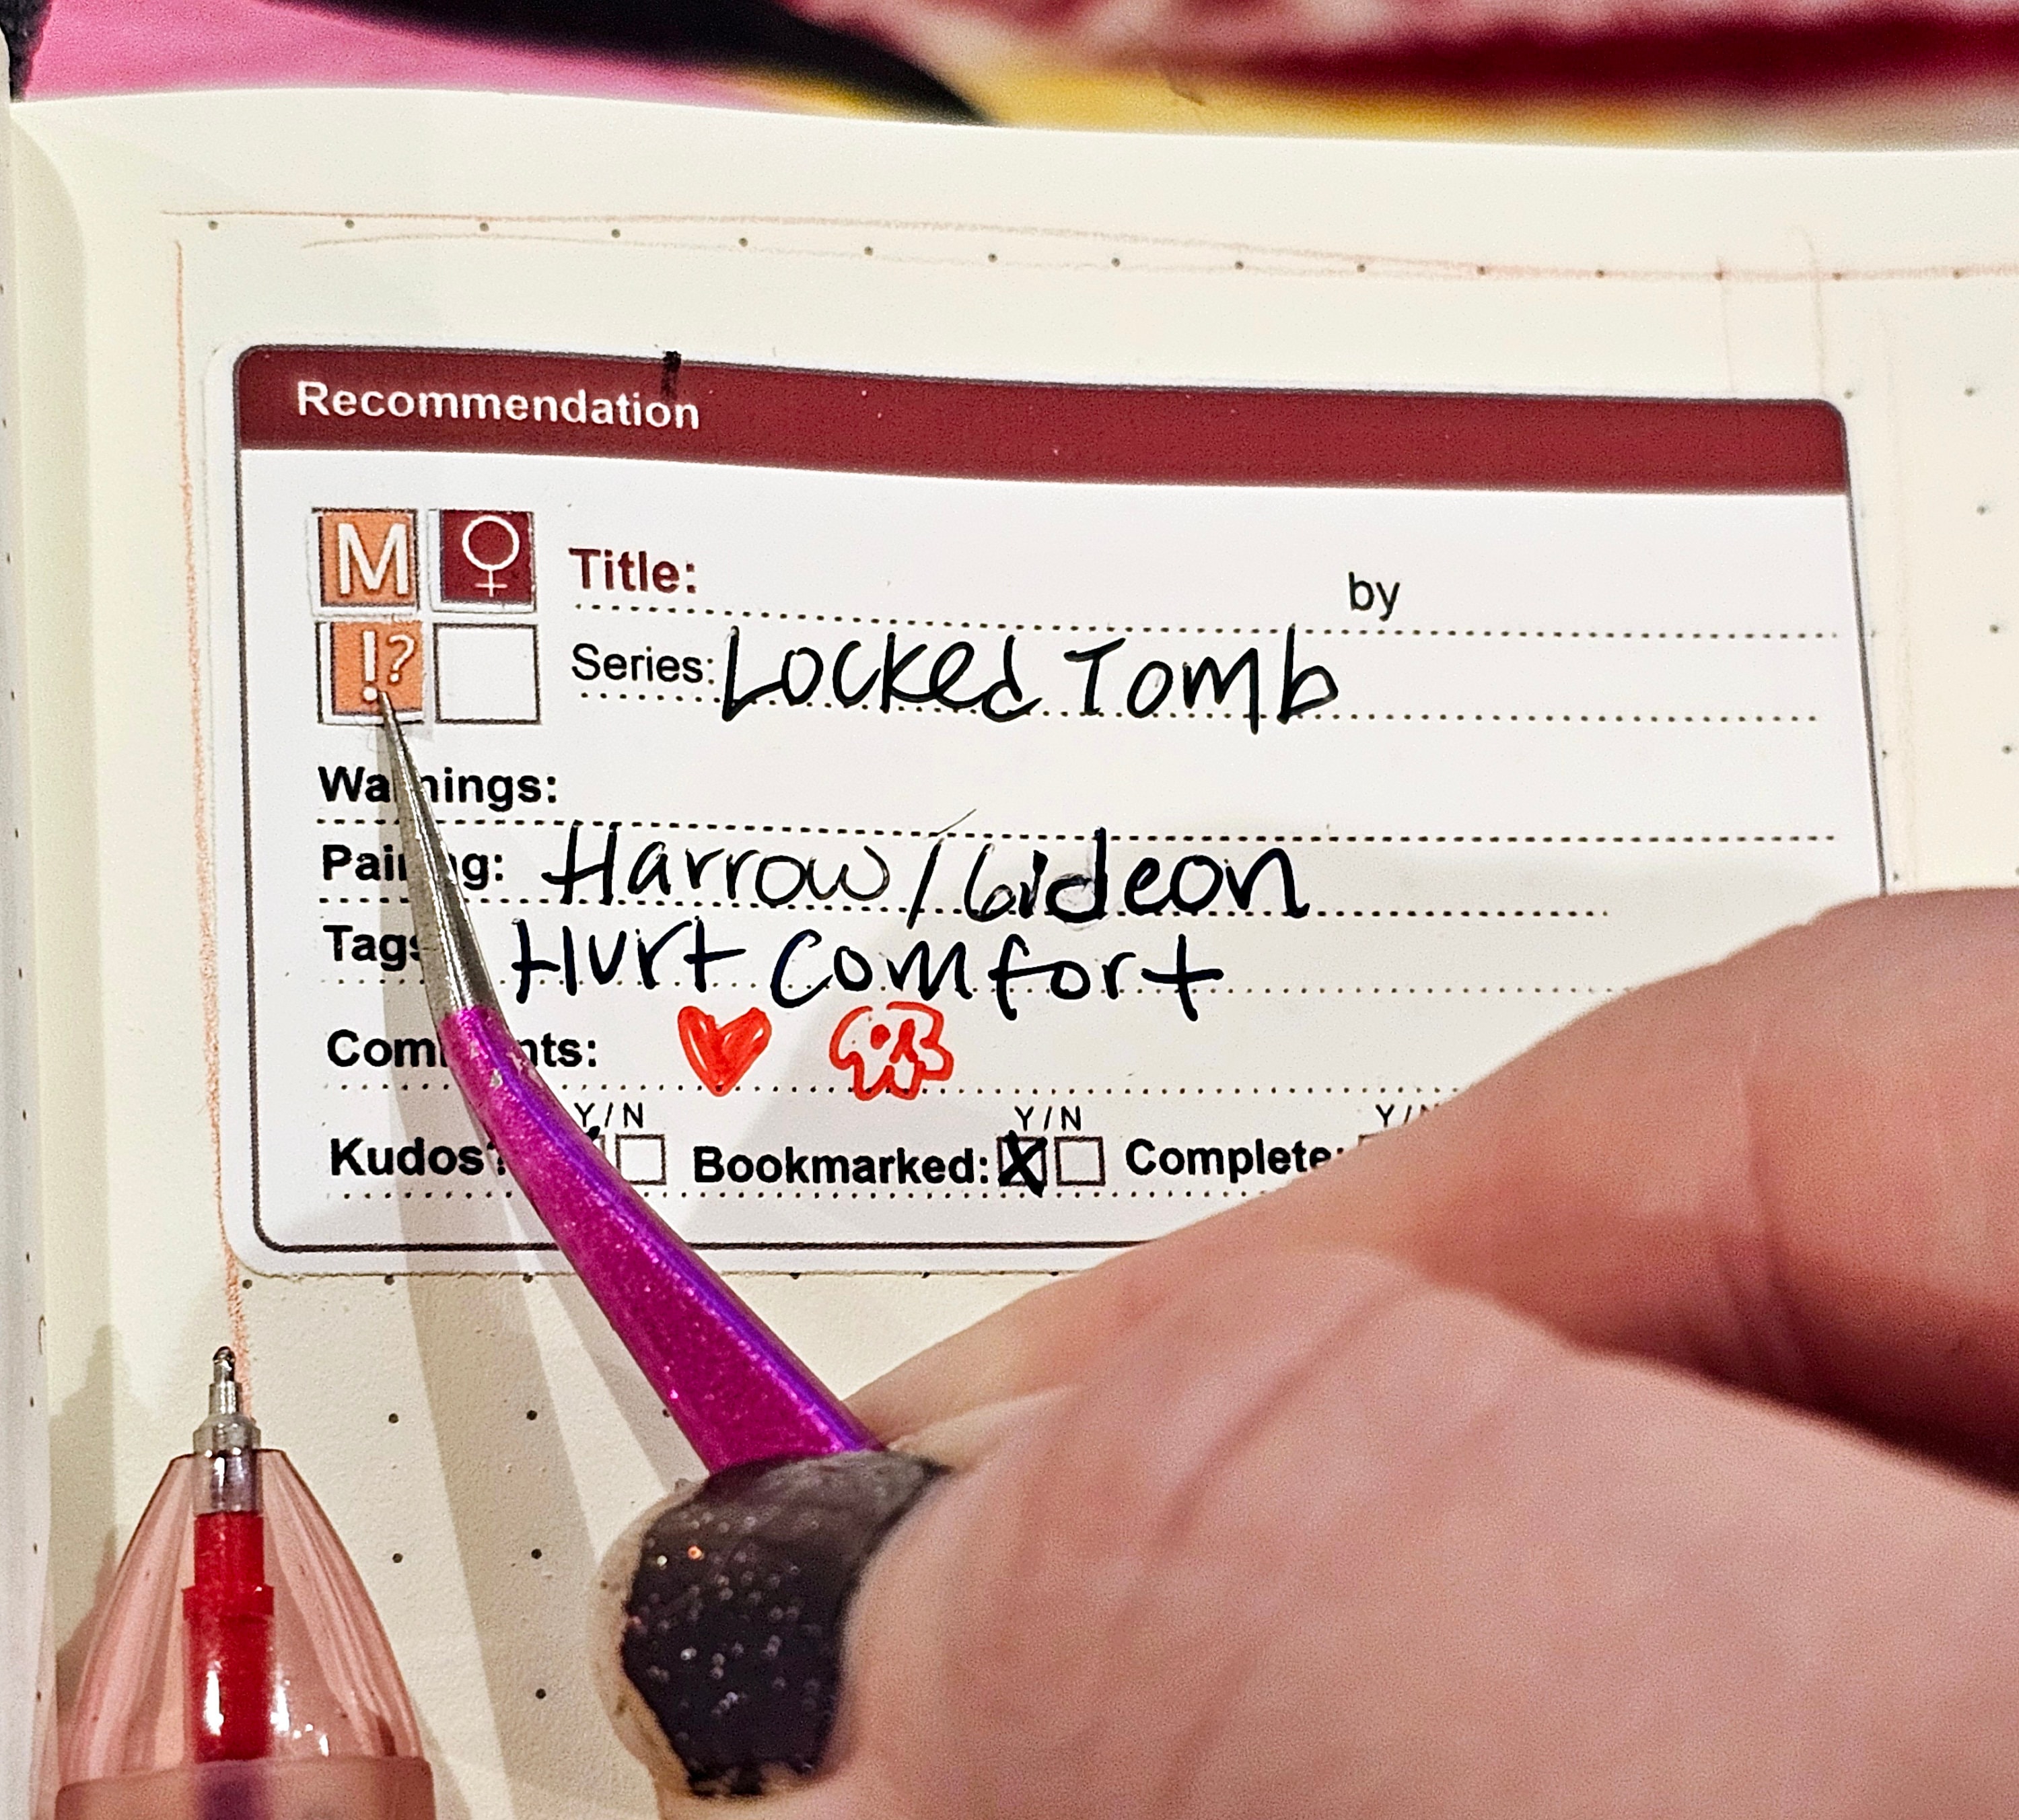 Recommendation
M
Title: by
!?
Series: Locked Tomb
Warnings:
Pairing: Harrow/Gideon
Tags Hurt Comfort
Comments:
Y/N Y/N Y/N
Kudos? Bookmarked: X Complete: